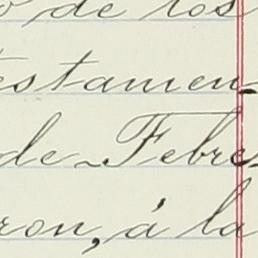 o de los
estamen-
de Febre-
ron, á la